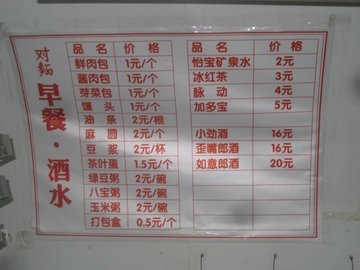 对面
早餐·酒水
品名 价格
鲜肉包 1元/个
酱肉包 1元/个
芽菜包 1元/个
馒头 1元/个
油条 2元/根
麻圆 2元/个
豆浆 2元/杯
茶叶蛋 1.5元/个
绿豆粥 2元/碗
八宝粥 2元/碗
玉米粥 2元/碗
打包盒 0.5元/个
品名 价格
怡宝矿泉水 2元
冰红茶 3元
脉动 4元
加多宝 5元
小劲酒 16元
歪嘴郎酒 16元
如意郎酒 20元